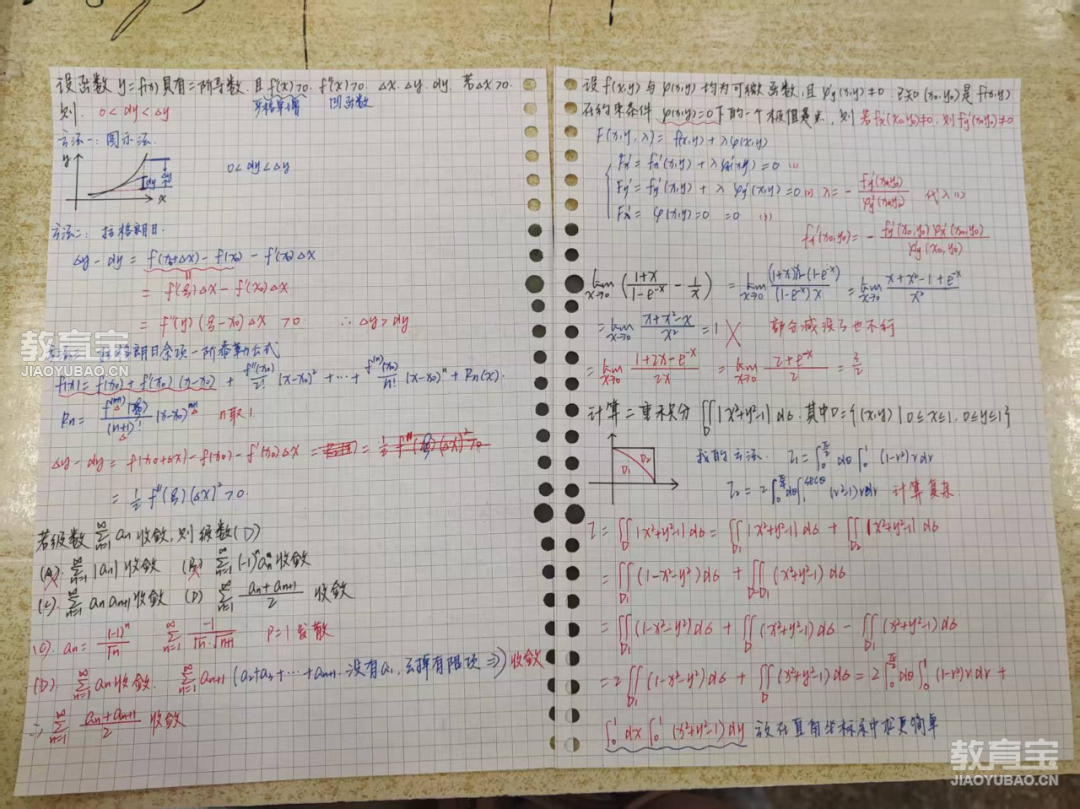 设函数 y=f(x) 具有二阶导数, 且 f'(x)>0. f''(x)>0. Δx. Δy. dy. 若Δx>0.
则. 0<dy<Δy 凹函数
方法一: 图示法.
y
dy
Δy
x
0<dy<Δy
方法二: 拉格朗日.
Δy-dy = f(x₀+Δx)-f(x₀)-f'(x₀)Δx
= f'(ξ)Δx-f'(x₀)Δx
= f''(η)(ξ-x₀)Δx >0 ∴Δy>dy
拉格朗日余项一阶泰勒公式
f(x)=f(x₀)+f'(x₀)(x-x₀)+f''(x₀)/2!(x-x₀)²+…+f⁽ⁿ⁾(x₀)/n!(x-x₀)ⁿ+Rn(x).
Rn= (x-x₀)ⁿ⁺¹ n取1.
Δy-dy = f(x₀+Δx)-f(x₀)-f'(x₀)Δx
= 1/2 f''(ξ)(Δx)²>0.
若级数 ∑(n=1,∞) an 收敛, 则级数(D)
(A) ∑(n=1,∞) |an| 收敛 (B) ∑(n=1,∞) (-1)ⁿan 收敛
(C) ∑(n=1,∞) an an+1 收敛 (D) ∑(n=1,∞) (an+an+1)/2 收敛
an=(-1)ⁿ/√n ∑(n=1,∞) -1/(√n·√n+1) P=1 发散
(D). ∑(n=1,∞) an 收敛. ∑(n=1,∞) an+1 (a2+a3+…+an+1 没有a1, 去掉有限项 ⇒) 收敛
⇒ ∑(n=1,∞) (an+an+1)/2 收敛
设 f(x,y) 与 φ(x,y) 均为可微函数, 且 φ'y(x,y)≠0 已知(x₀,y₀)是f(x,y)
在约束条件 φ(x,y)=0下的一个极值点, 则 若fx'(x₀,y₀)≠0, 则fy'(x₀,y₀)≠0
F(x,y,λ)= f(x,y)+λφ(x,y)
Fx'=fx'(x,y)+λφx'(x,y)=0 (1)
Fy'=fy'(x,y)+λφy'(x,y)=0 λ=-fy'(x₀,y₀)/φy'(x₀,y₀) 代入(1)
Fλ'=φ(x,y)=0 =0
fx'(x₀,y₀)=-fy'(x₀,y₀)φx'(x₀,y₀)/φy'(x₀,y₀)
lim(x→0) ((1+x)/(1-e⁻ˣ) - 1/x) = lim(x→0) ((1+x)x-(1-e⁻ˣ))/((1-e⁻ˣ)x) = lim(x→0) (x+x²-1+e⁻ˣ)/x²
= lim(x→0) (x+x²-x)/x² = 1 ✗ 部分减没了也不行
= lim(x→0) (1+2x-e⁻ˣ)/2x = lim(x→0) (2+e⁻ˣ)/2 = 3/2
计算二重积分 ∬D |x²+y²-1| dσ. 其中D={(x,y)|0≤x≤1, 0≤y≤1}
D1 D2
我的方法. I₁=∫(0,π/2)dθ∫(0,1)(1-r²)rdr
I₂=2∫(0,π/4)dθ∫(1,secθ)(r²-1)rdr 计算复杂
I=∬D |x²+y²-1| dσ = ∬D1 |x²+y²-1| dσ + ∬D2 |x²+y²-1| dσ
= ∬D1 (1-x²-y²) dσ + ∬D-D1 (x²+y²-1) dσ
= ∬D1 (1-x²-y²) dσ + ∬D (x²+y²-1) dσ - ∬D1 (x²+y²-1) dσ
= 2∬D1 (1-x²-y²) dσ + ∬D (x²+y²-1) dσ = 2∫(0,π/2)dθ∫(0,1)(1-r²)rdr +
∫(0,1)dx∫(0,1)(x²+y²-1)dy 放在直角坐标系中求更简单
教育宝
JIAOYUBAO.CN
教育宝
JIAOYUBAO.CN